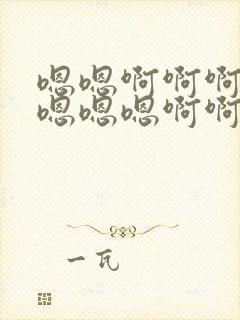 嗯嗯啊啊啊
嗯嗯嗯啊啊
一瓦